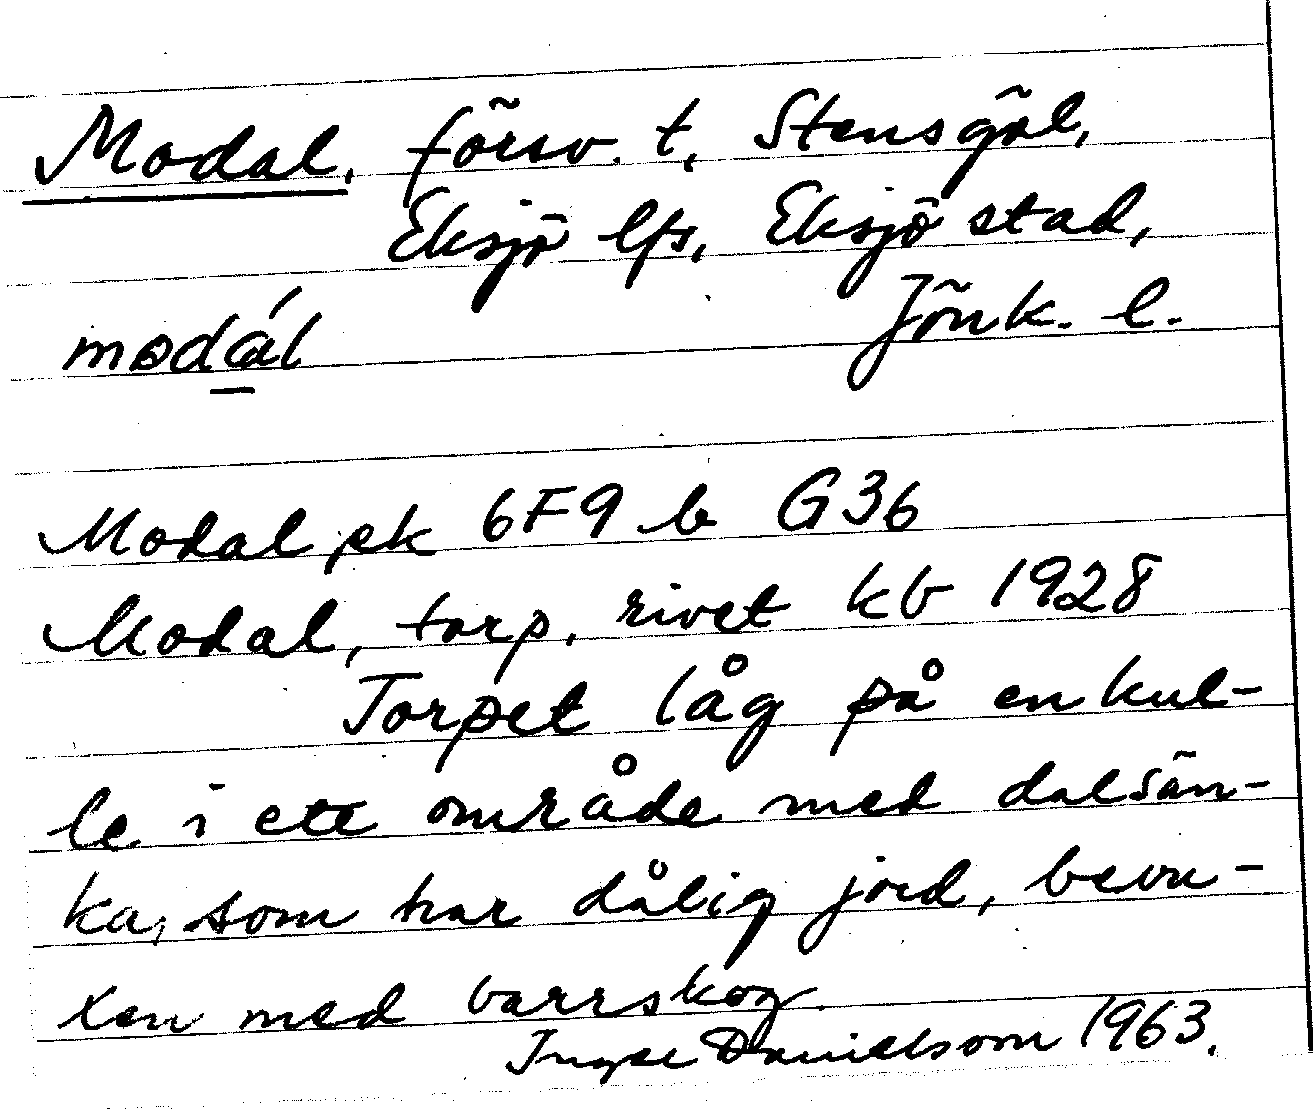 Modal, försv. t. Stensgöl,
Eksjö lfs, Eksjö stad,
Jönk. l.
modál
Modal ek 6F9 b G36
Modal, torp, rivet kb 1928
Torpet låg på en kul-
le i ett område med dalsän-
ka, som har dålig jord, bevu-
xen med barrskog.
Ingel Danielsson 1963.